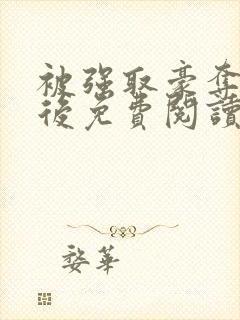 被强取豪奪
後免費閱讀
婺華